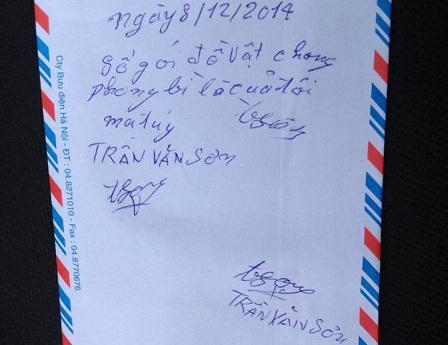 ngày 8/12/2014
Số gói đồ vật chong
phong bì là của tôi
ma túy
TRẦN VĂN SƠN
TRẦN VĂN SƠN
Cty Bưu điện Hà Nội - ĐT : 04.8271010 - Fax : 04.8770676